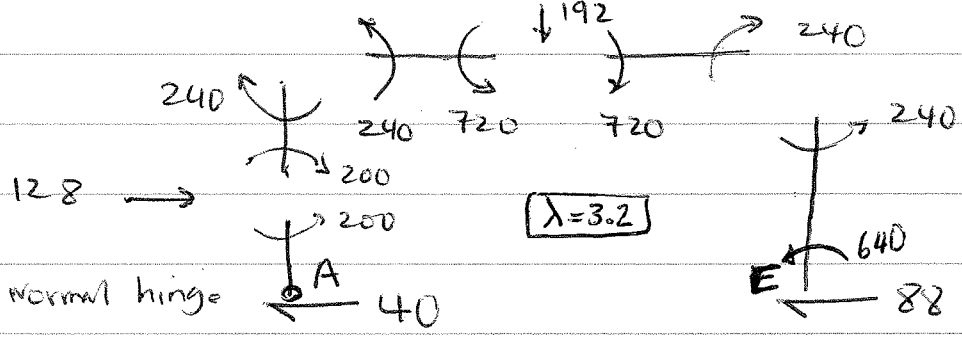 ↓ 192
240
240
240 720 720
240
200
128 →
λ=3.2
200
640
A
E
normal hinge
40
88